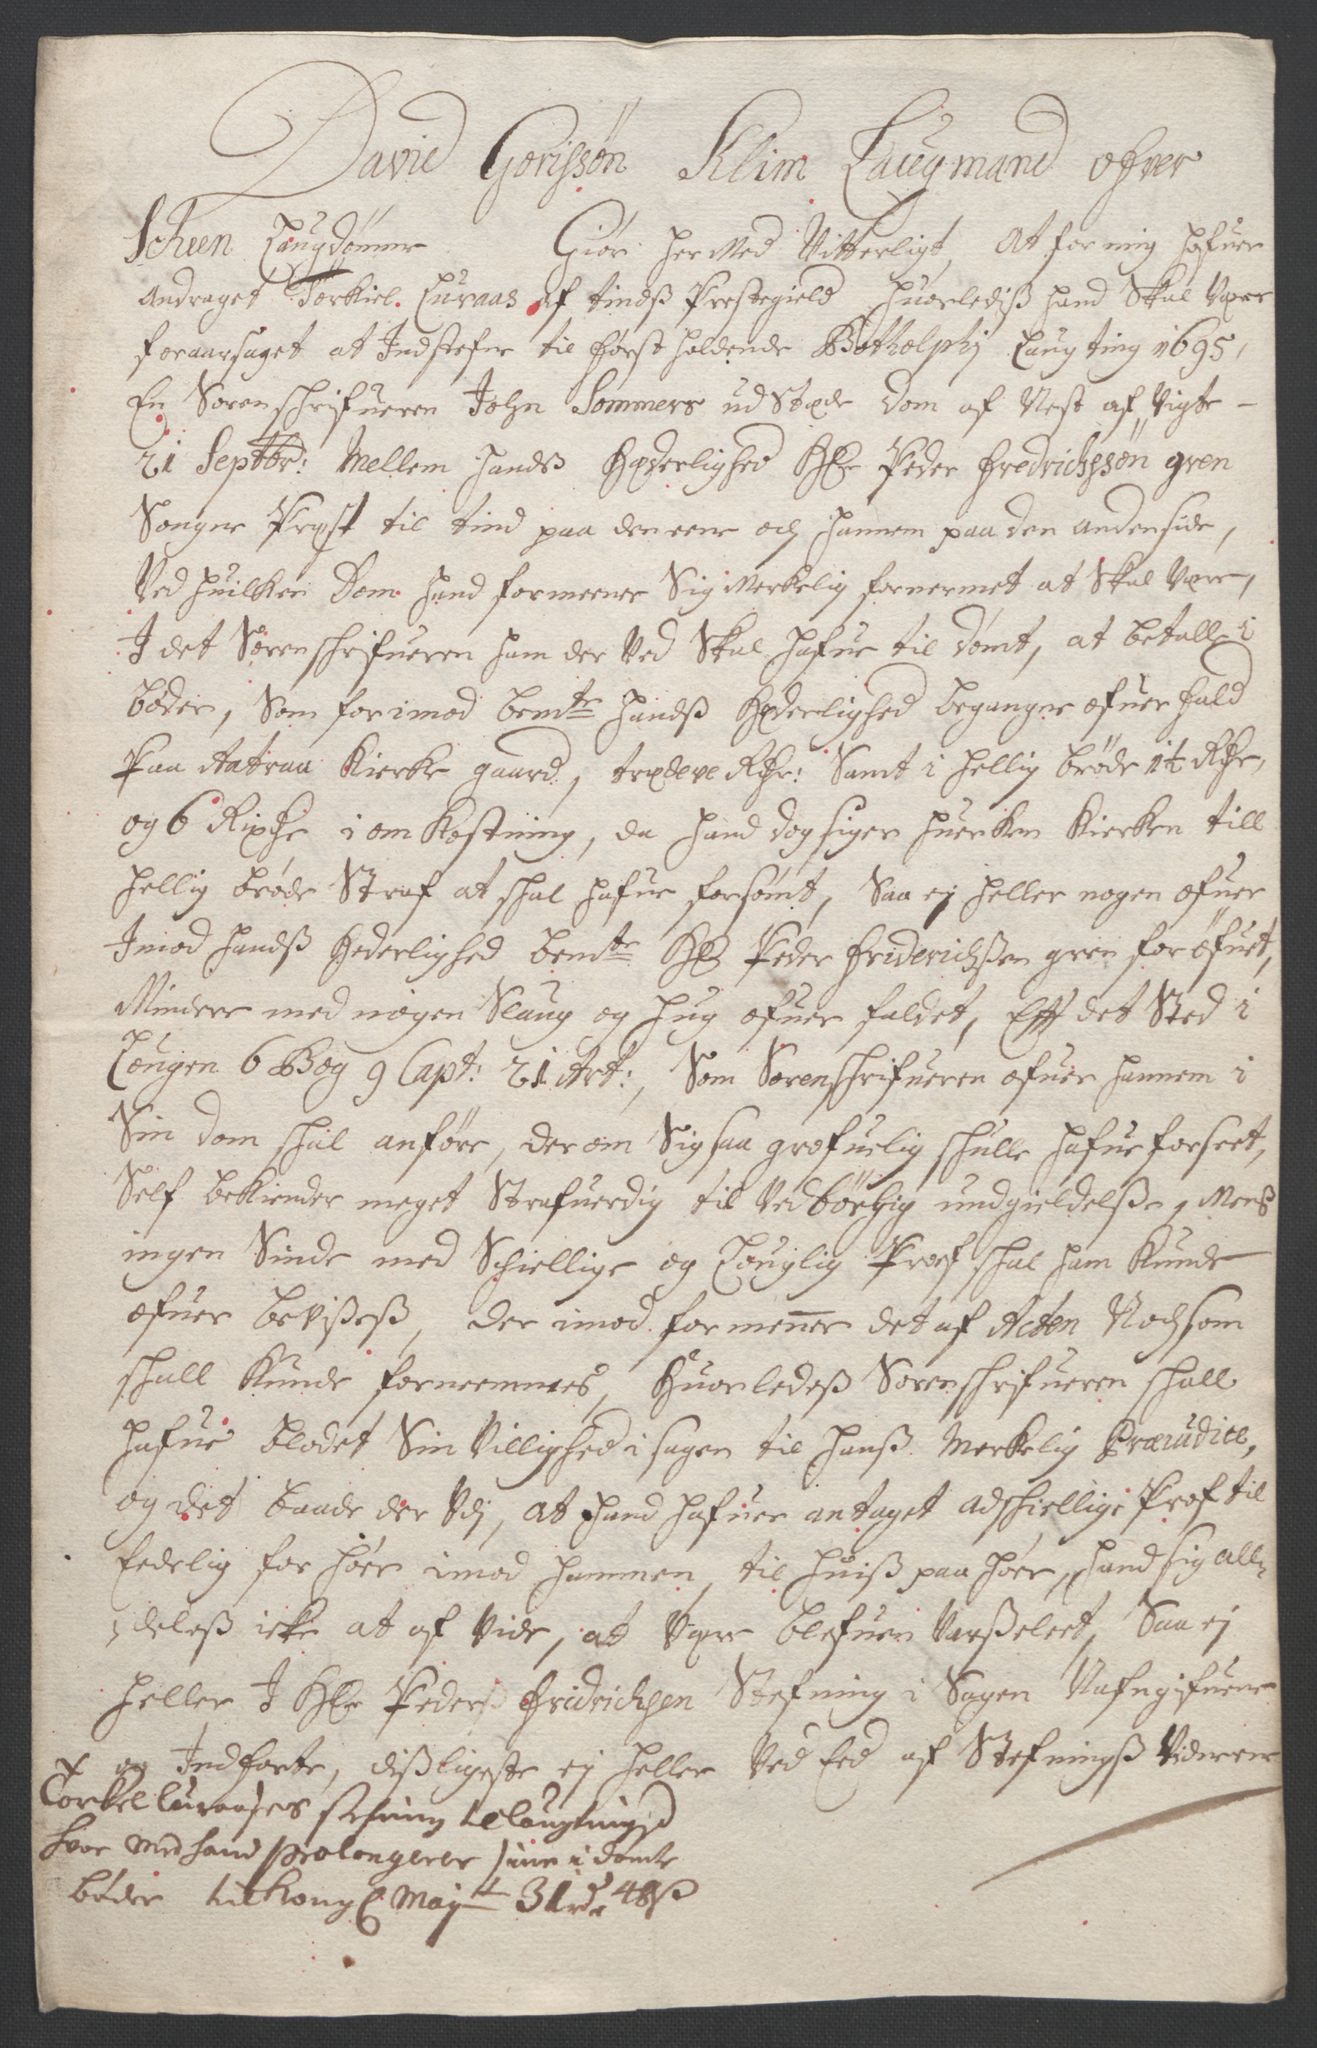 David Gorissøn Klim Laugmand ofver
Scheen Laugdømme Giør her Med Vitterligt, At for mig hafuer
Andraget Torkiel Luraas af tindß Prestegield huorlediß hand Skal Være
foraarsaget at Indstefne til først holdende Botholphj Laugting 1695,
En Sorenschrifueren John Sommers udstæde Dom af Nest af Vigte
21 Septbr: Mellem handß Hæderlighed Hr Peder Fredrichsøn gren
Sogne Præst til tind paa den eene och hannem paa den anden side,
Ved huilken Dom hand formeener Sig Merkelig fornermet at Skal Være,
I det Sorenschrifueren ham der Ved Skal hafue til dømt, at betalle i
bøder, Som for imod bemte handß Hæderlighed begangne ofuer fald
Paa Aatraa Kierke gaard, trædeve Rdr: Samt i hellig brøde 1½ Rdr,
og 6 Rixdr i om Kostning, da hand dog siger huerken Kierken till
hellig brøde Straf at schal hafue forsømt, Saa ej heller nogen ofuer
Imod handß Hederlighed bemte Hr Peder Friderichßen gren forøfuet,
Mindre med nogen Slaug og hug ofuer faldet, Eft det Sted i
Lougen 6 Bog 9 Capt: 21 Art:, Som Sorenschrifueren ofuer hannem i
Sin dom schal anføre, der om Sig saa grofuelig schulle hafue forseet,
Self bekiender meget Strafuerdig til Vedbørlig undgieldelße, Mens
ingen Sinde med Schiellige og Louglig Prof schal ham Kunde
ofuer beVißeß, der imod formener det af Acten Nochsom
schall Kunde fornemmes, Huorledeß Sorenschrifueren schall
hafue blodet Sin Villighed i sagen til hanß Merkelig Præiudice,
og det baade der Vdj, At hand hafuer antaget adschiellige Prof til
Eedelig for hør imod hammen, til huiß paa hør, hand sig all
deleß icke at af Vide, at Være blefuen Varßelet, Saa ej
heller I Hr Pederß Fridrichsen Stefning i Sagen Nafngifuene
og Indforte, dißligeste ej heller Ved Eed af Stefningß Vidnerne
Torkel Luraases stefning til laugtinged
hvor med hand prolongerer sine i dømte
bøder til Kongl Maytt 31 rdr 48 ß